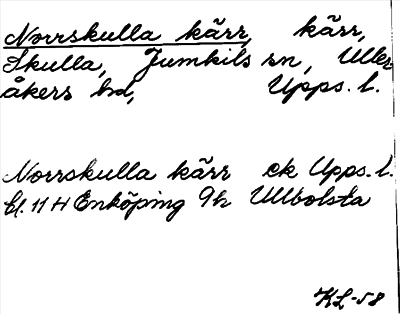 Norrskulla kärr, kärr,
Skulla, Jumkils sn, Uller
åkers hd, Upps. l.
Norrskulla kärr ek Upps. l.
bl. 11 H Enköping 9h Ullbolsta
KL-58